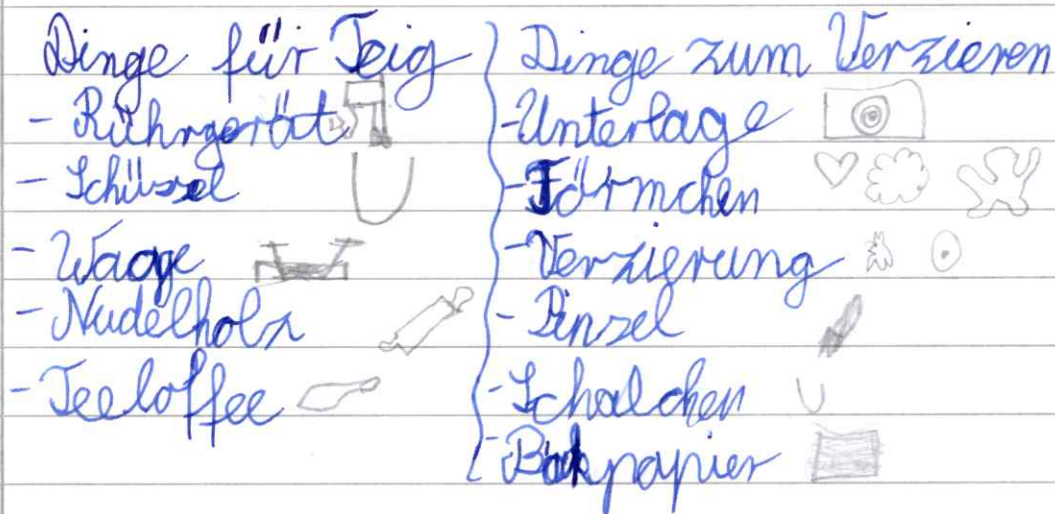 Dinge für Teig
- Rührgerät
- Schüssel
- Waage
- Nudelholz
- Teeloffee
Dinge zum Verzieren
- Unterlage
- Förmchen
- Verzierung
- Pinsel
- Schalchen
- Bakpapier